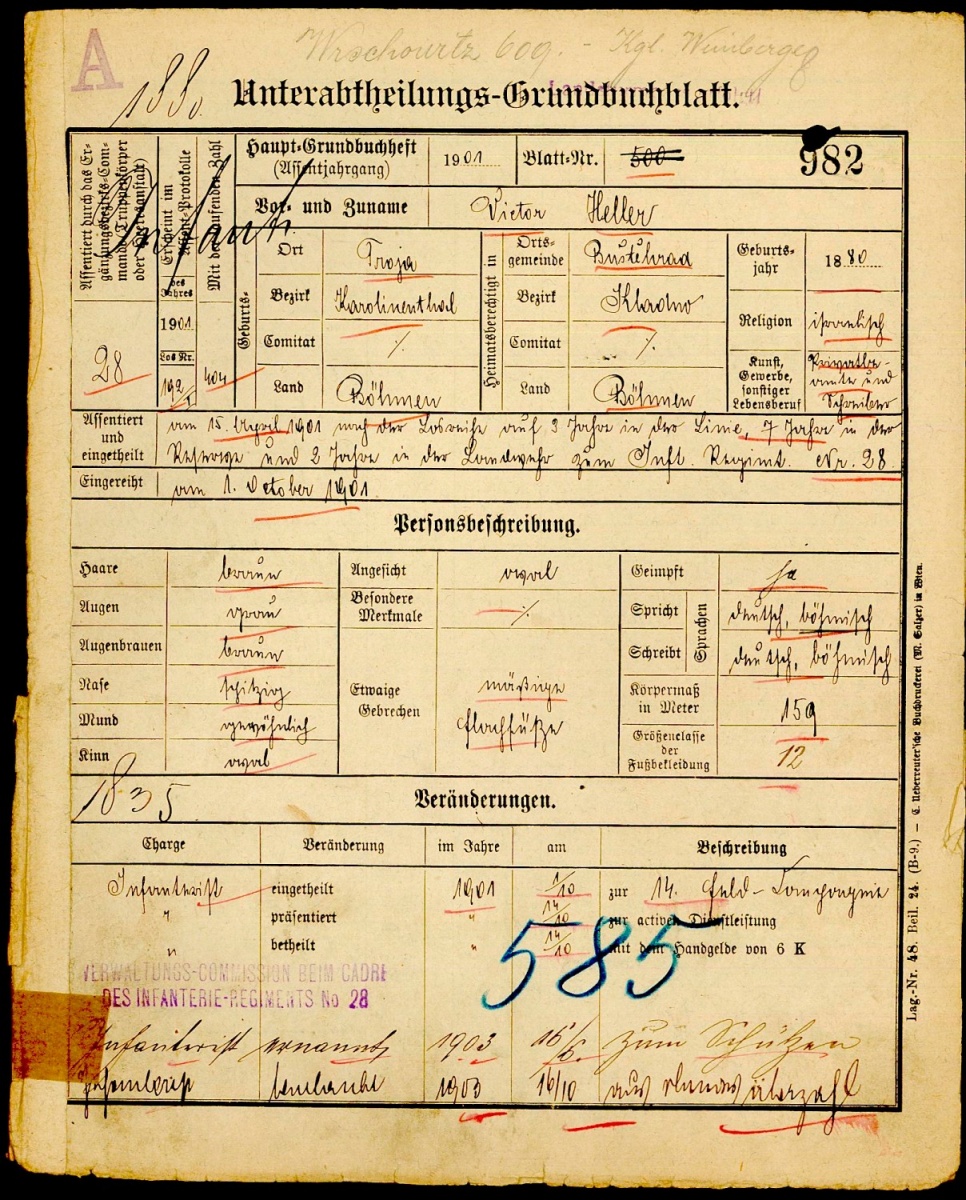 A
Wrschowitz 609. - Kgl. Weinberge
1880
Unterabtheilungs-Grundbuchblatt.
Assentiert durch das Ergänzungsbezirks-Commando (Truppenkörper oder Heeresanstalt)
Erscheint im Assent-Protokolle
des Jahres
1901
Los Nr.
Mit der laufenden Zahl
28
404
Haupt-Grundbuchheft
(Assentjahrgang)
1901
Blatt-Nr.
500
982
Vor- und Zuname
Victor Heller
Geburts-
Ort Troja
Bezirk Karolinenthal
Comitat ./.
Land Böhmen
Heimatsberechtigt in
Ortsgemeinde Bustěhrad
Bezirk Kladno
Comitat ./.
Land Böhmen
Geburtsjahr 1880
Religion israelisch
Kunst, Gewerbe, sonstiger Lebensberuf
Privatbeamte und Schreiber
Assentiert und eingetheilt
am 15. April 1901 nach der Losreihe auf 3 Jahre in der Linie, 7 Jahre in der
Reserve und 2 Jahre in der Landwehr zum Inft. Regimt. Nr. 28
Eingereiht
am 1. October 1901.
Personsbeschreibung.
Haare braun
Augen grau
Augenbrauen braun
Nase spitzig
Mund gewöhnlich
Kinn oval
Angesicht oval
Besondere Merkmale ./.
Etwaige Gebrechen
mäßige
Flachfüße
Geimpft ja
Sprachen
Spricht deutsch, böhmisch
Schreibt deutsch, böhmisch
Körpermaß in Meter 159
Größenclasse der Fußbekleidung 12
1835
Veränderungen.
Charge Veränderung im Jahre am Beschreibung
Infanterist eingetheilt 1901 1/10 zur 14. Feld-Compagnie
" präsentiert " 14/10 zur activen Dienstleistung
" betheilt " 14/10 mit dem Handgelde von 6 K
585
VERWALTUNGS-COMMISSION BEIM CADRE
DES INFANTERIE-REGIMENTS No 28
Infanterist ernannt 1903 zum Schützen
beurlaubt 1903 16/10 überzahl
Lag.-Nr. 48. Beil. 24. (B-9.) — C. Ueberreuter'sche Buchdruckerei (M. Salzer) in Wien.